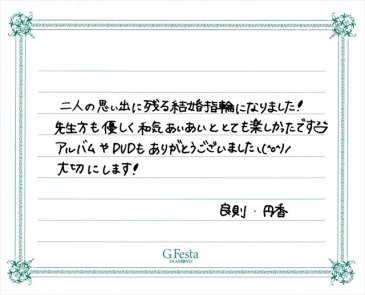 二人の思い出に残る結婚指輪になりました!
先生方も優しく和気あいあいととても楽しかったです
アルバムやDVDもありがとうございました\(^o^)/
大切にします!
良則・円香
G.Festa
DIAMOND